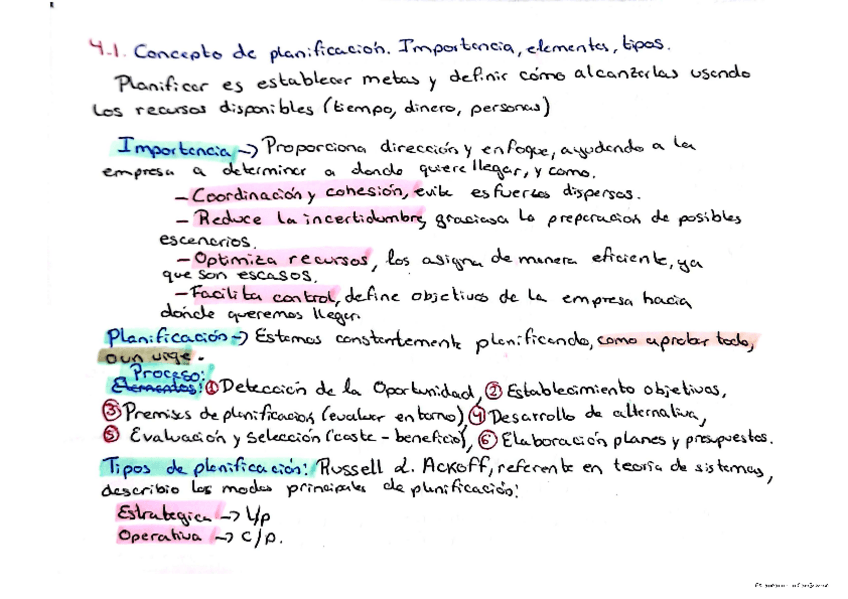 4.1. Concepto de planificación. Importancia, elementos, tipos.
Planificar es establecer metas y definir cómo alcanzarlas usando
los recursos disponibles (tiempo, dinero, personas)
Importancia -> Proporciona dirección y enfoque, ayudando a la
empresa a determinar a donde quiere llegar, y como.
- Coordinación y cohesión, evita esfuerzos dispersos.
- Reduce la incertidumbre, gracias a la preparacion de posibles
escenarios.
- Optimiza recursos, los asigna de manera eficiente, ya
que son escasos.
- Facilita control, define objetivos de la empresa hacia
dónde queremos llegar.
Planificación -> Estamos constantemente planificando, como aprobar todo,
Proceso:
Elementos: ① Detección de la Oportunidad, ② Establecimiento objetivos,
③ Premisas de planificacion (evaluar entorno) ④ Desarrollo de alternativa,
⑤ Evaluación y Selección (coste - beneficio), ⑥ Elaboración planes y presupuestos.
Tipos de planificación: Russell L. Ackoff, referente en teoría de sistemas,
describio los modos principales de planificación:
Estrategica -> L/p
Operativa -> C/p.